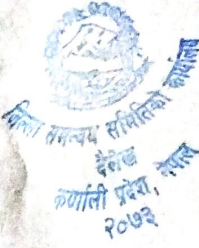 जिल्ला समन्वय समितिको कार्यालय
दैलेख
कर्णाली प्रदेश, नेपाल
२०७३